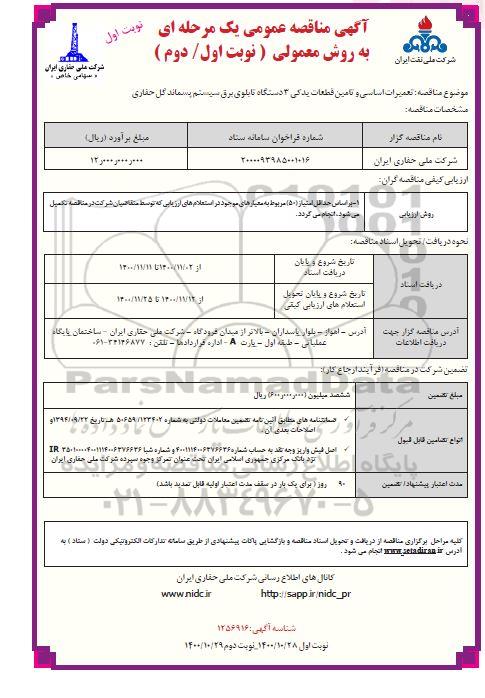 آگهی مناقصه عمومی یک مرحله ای
به روش معمولی ( نوبت اول/ دوم )
نوبت اول
شرکت ملی نفت ایران
شرکت ملی حفاری ایران
« سهامی خاص »
موضوع مناقصه: تعمیرات اساسی و تامین قطعات یدکی ۳ دستگاه تابلوی برق سیستم پسماند گل حفاری
مشخصات مناقصه:
نام مناقصه گزار
شماره فراخوان سامانه ستاد
مبلغ برآورد (ریال)
شرکت ملی حفاری ایران
۲۰۰۰۰۹۳۹۸۵۰۰۱۰۱۶
۱۲٫۰۰۰٫۰۰۰٫۰۰۰
ارزیابی کیفی مناقصه گران:
روش ارزیابی
۱-براساس حداقل امتیاز (۵۰) مربوط به معیارهای موجود در استعلام های ارزیابی که توسط متقاضیان شرکت در مناقصه تکمیل
می شود، انجام می گردد.
نحوه دریافت/ تحویل اسناد مناقصه:
دریافت اسناد
تاریخ شروع و پایان
دریافت اسناد
از ۱۴۰۰/۱۱/۰۲ تا ۱۴۰۰/۱۱/۱۱
تاریخ شروع و پایان تحویل
استعلام های ارزیابی کیفی
از ۱۴۰۰/۱۱/۱۲ تا ۱۴۰۰/۱۱/۲۵
آدرس مناقصه گزار جهت
دریافت اطلاعات
آدرس - اهواز - بلوار پاسداران - بالاتر از میدان فرودگاه - شرکت ملی حفاری ایران - ساختمان پایگاه
عملیاتی - طبقه اول - پارت A - اداره قراردادها - تلفن : ۰۶۱-۳۴۱۴۶۸۷۷
تضمین شرکت در مناقصه (فرآیند ارجاع کار):
مبلغ تضمین
ششصد میلیون (۶۰۰٫۰۰۰٫۰۰۰) ریال
انواع تضامین قابل قبول
✓ ضمانتنامه های مطابق آئین نامه تضمین معاملات دولتی به شماره ۱۲۳۴۰۲/ت۵۰۶۵۹ هـ تاریخ ۱۳۹۴/۰۹/۲۲ و
اصلاحات بعدی آن.
✓ اصل فیش واریز وجه نقد به حساب شماره ۴۰۰۱۱۱۴۰۰۶۳۷۶۶۳۶ و شماره شبا IR ۳۵۰۱۰۰۰۰۴۰۰۱۱۱۴۰۰۶۳۷۶۶۳۶
نزد بانک مرکزی جمهوری اسلامی ایران تحت عنوان تمرکز وجوه سپرده شرکت ملی حفاری ایران
مدت اعتبار پیشنهاد/ تضمین
۹۰ روز ( برای یک بار در سقف مدت اعتبار اولیه قابل تمدید باشد)
کلیه مراحل برگزاری مناقصه از دریافت و تحویل اسناد مناقصه و بازگشایی پاکات پیشنهادی از طریق سامانه تدارکات الکترونیکی دولت ( ستاد ) به
آدرس www.setadiran.ir انجام می شود .
کانال های اطلاع رسانی شرکت ملی حفاری ایران
www.nidc.ir http://sapp.ir/nidc_pr
شناسه آگهی: ۱۲۵۶۹۱۶
نوبت اول ۱۴۰۰/۱۰/۲۸_نوبت دوم ۱۴۰۰/۱۰/۲۹
ParsNamadData
۰۲۱-۸۸۳۴۹۶۷۰-۵